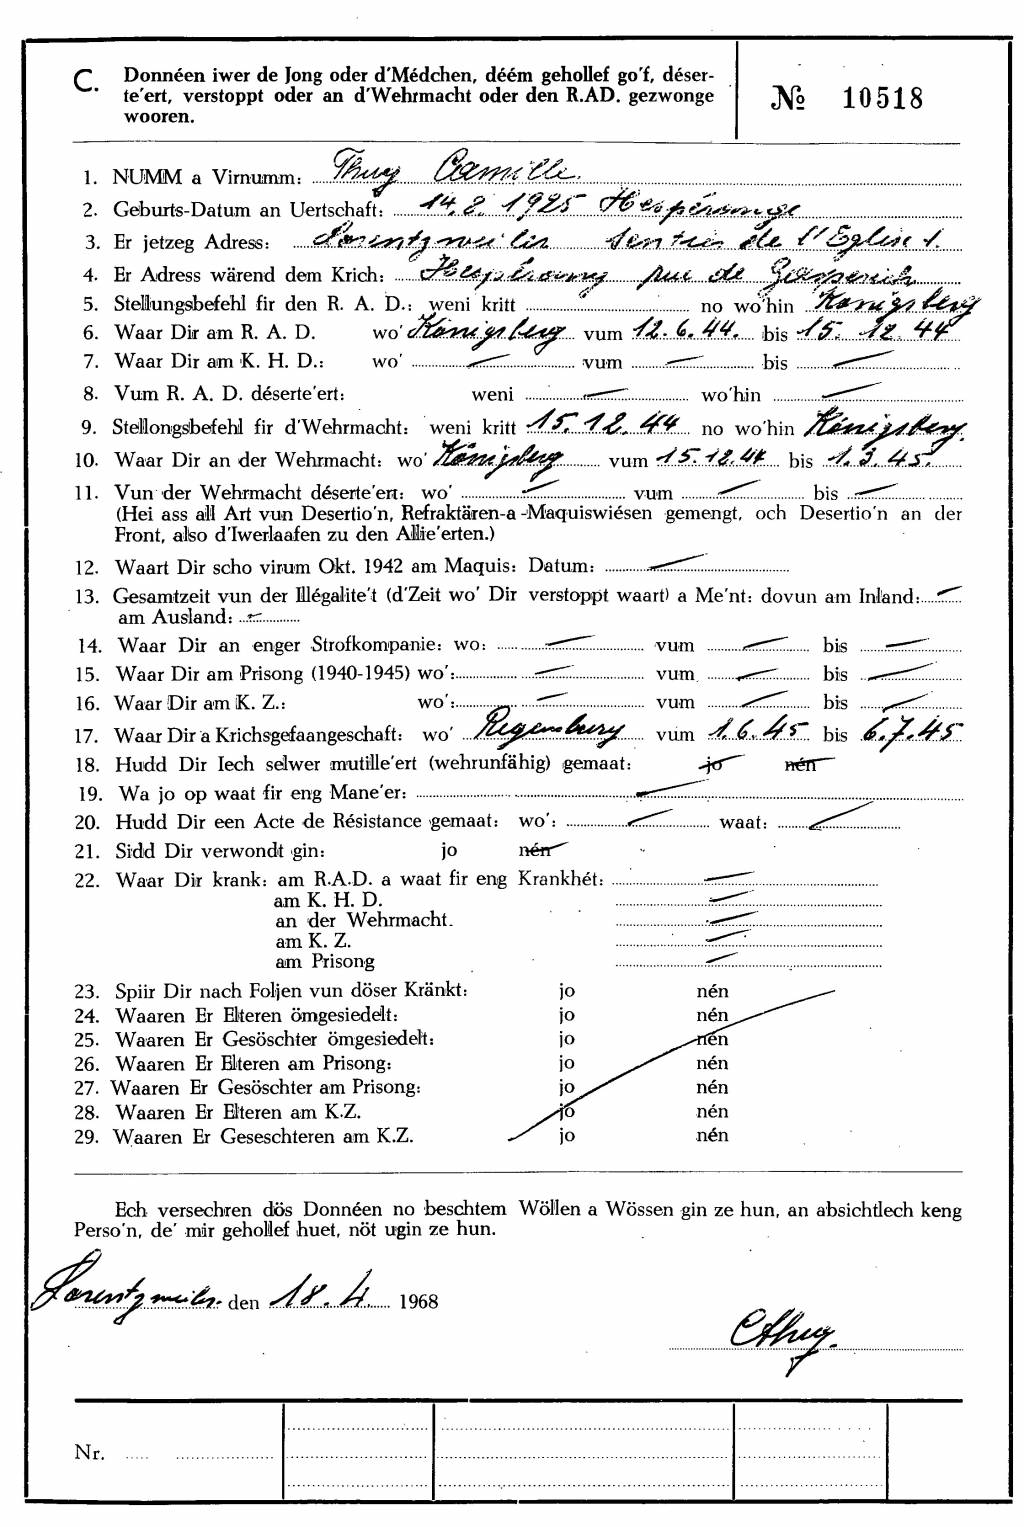 C. Donnéen iwer de Jong oder d'Médchen, déém gehollef go'f, déser-
te'ert, verstoppt oder an d'Wehrmacht oder den R.AD. gezwonge
wooren.
№ 10518
1. NUMM a Virnumm: Thug Camille.
2. Geburts-Datum an Uertschaft: 14.2.1925 Hespérange
3. Er jetzeg Adress: Lorentzweiler Sentier de l'Eglise 1.
4. Er Adress wärend dem Krich: Hespérang rue de Gasperich
5. Stellungsbefehl fir den R. A. D.: weni kritt no wo'hin Königsberg
6. Waar Dir am R. A. D. wo' Königsberg vum 12.6.44. bis 15. 12. 44
7. Waar Dir am K. H. D.: wo' — vum — bis —
8. Vum R. A. D. déserte'ert: weni — wo'hin —
9. Stellongsbefehl fir d'Wehrmacht: weni kritt 15.12.44 no wo'hin Königsberg.
10. Waar Dir an der Wehrmacht: wo' Königsberg vum 15.12.44 bis 1.3.45.
11. Vun der Wehrmacht déserte'ert: wo' — vum — bis —
(Hei ass all Art vun Desertio'n, Refraktären-a-Maquiswiésen gemengt, och Desertio'n an der
Front, also d'Iwerlaafen zu den Allie'erten.)
12. Waart Dir scho virum Okt. 1942 am Maquis: Datum: —
13. Gesamtzeit vun der Illégalite't (d'Zeit wo' Dir verstoppt waart) a Me'nt: dovun am Inland: —
am Ausland: —
14. Waar Dir an enger Strofkompanie: wo: — vum — bis —
15. Waar Dir am Prisong (1940-1945) wo': — vum — bis —
16. Waar Dir am K. Z.: wo': — vum — bis —
17. Waar Dir a Krichsgefaangeschaft: wo' Regensburg vum 1.6.45 bis 6.7.45
18. Hudd Dir Iech selwer mutille'ert (wehrunfähig) gemaat: jo nén
19. Wa jo op waat fir eng Mane'er: —
20. Hudd Dir een Acte de Résistance gemaat: wo': — waat: —
21. Sidd Dir verwondt gin: jo nén
22. Waar Dir krank: am R.A.D. a waat fir eng Krankhét: —
am K. H. D. —
an der Wehrmacht. —
am K. Z. —
am Prisong —
23. Spiir Dir nach Foljen vun döser Kränkt: jo nén
24. Waaren Er Elteren ömgesiedelt: jo nén
25. Waaren Er Gesöschter ömgesiedelt: jo nén
26. Waaren Er Elteren am Prisong: jo nén
27. Waaren Er Gesöschter am Prisong: jo nén
28. Waaren Er Elteren am K.Z. jo nén
29. Waaren Er Geseschteren am K.Z. jo nén
Ech versechren dös Donnéen no beschtem Wöllen a Wössen gin ze hun, an absichtlech keng
Perso'n, de' mir gehollef huet, nöt ugin ze hun.
Lorentzweiler den 18.4. 1968
CThug.
Nr.